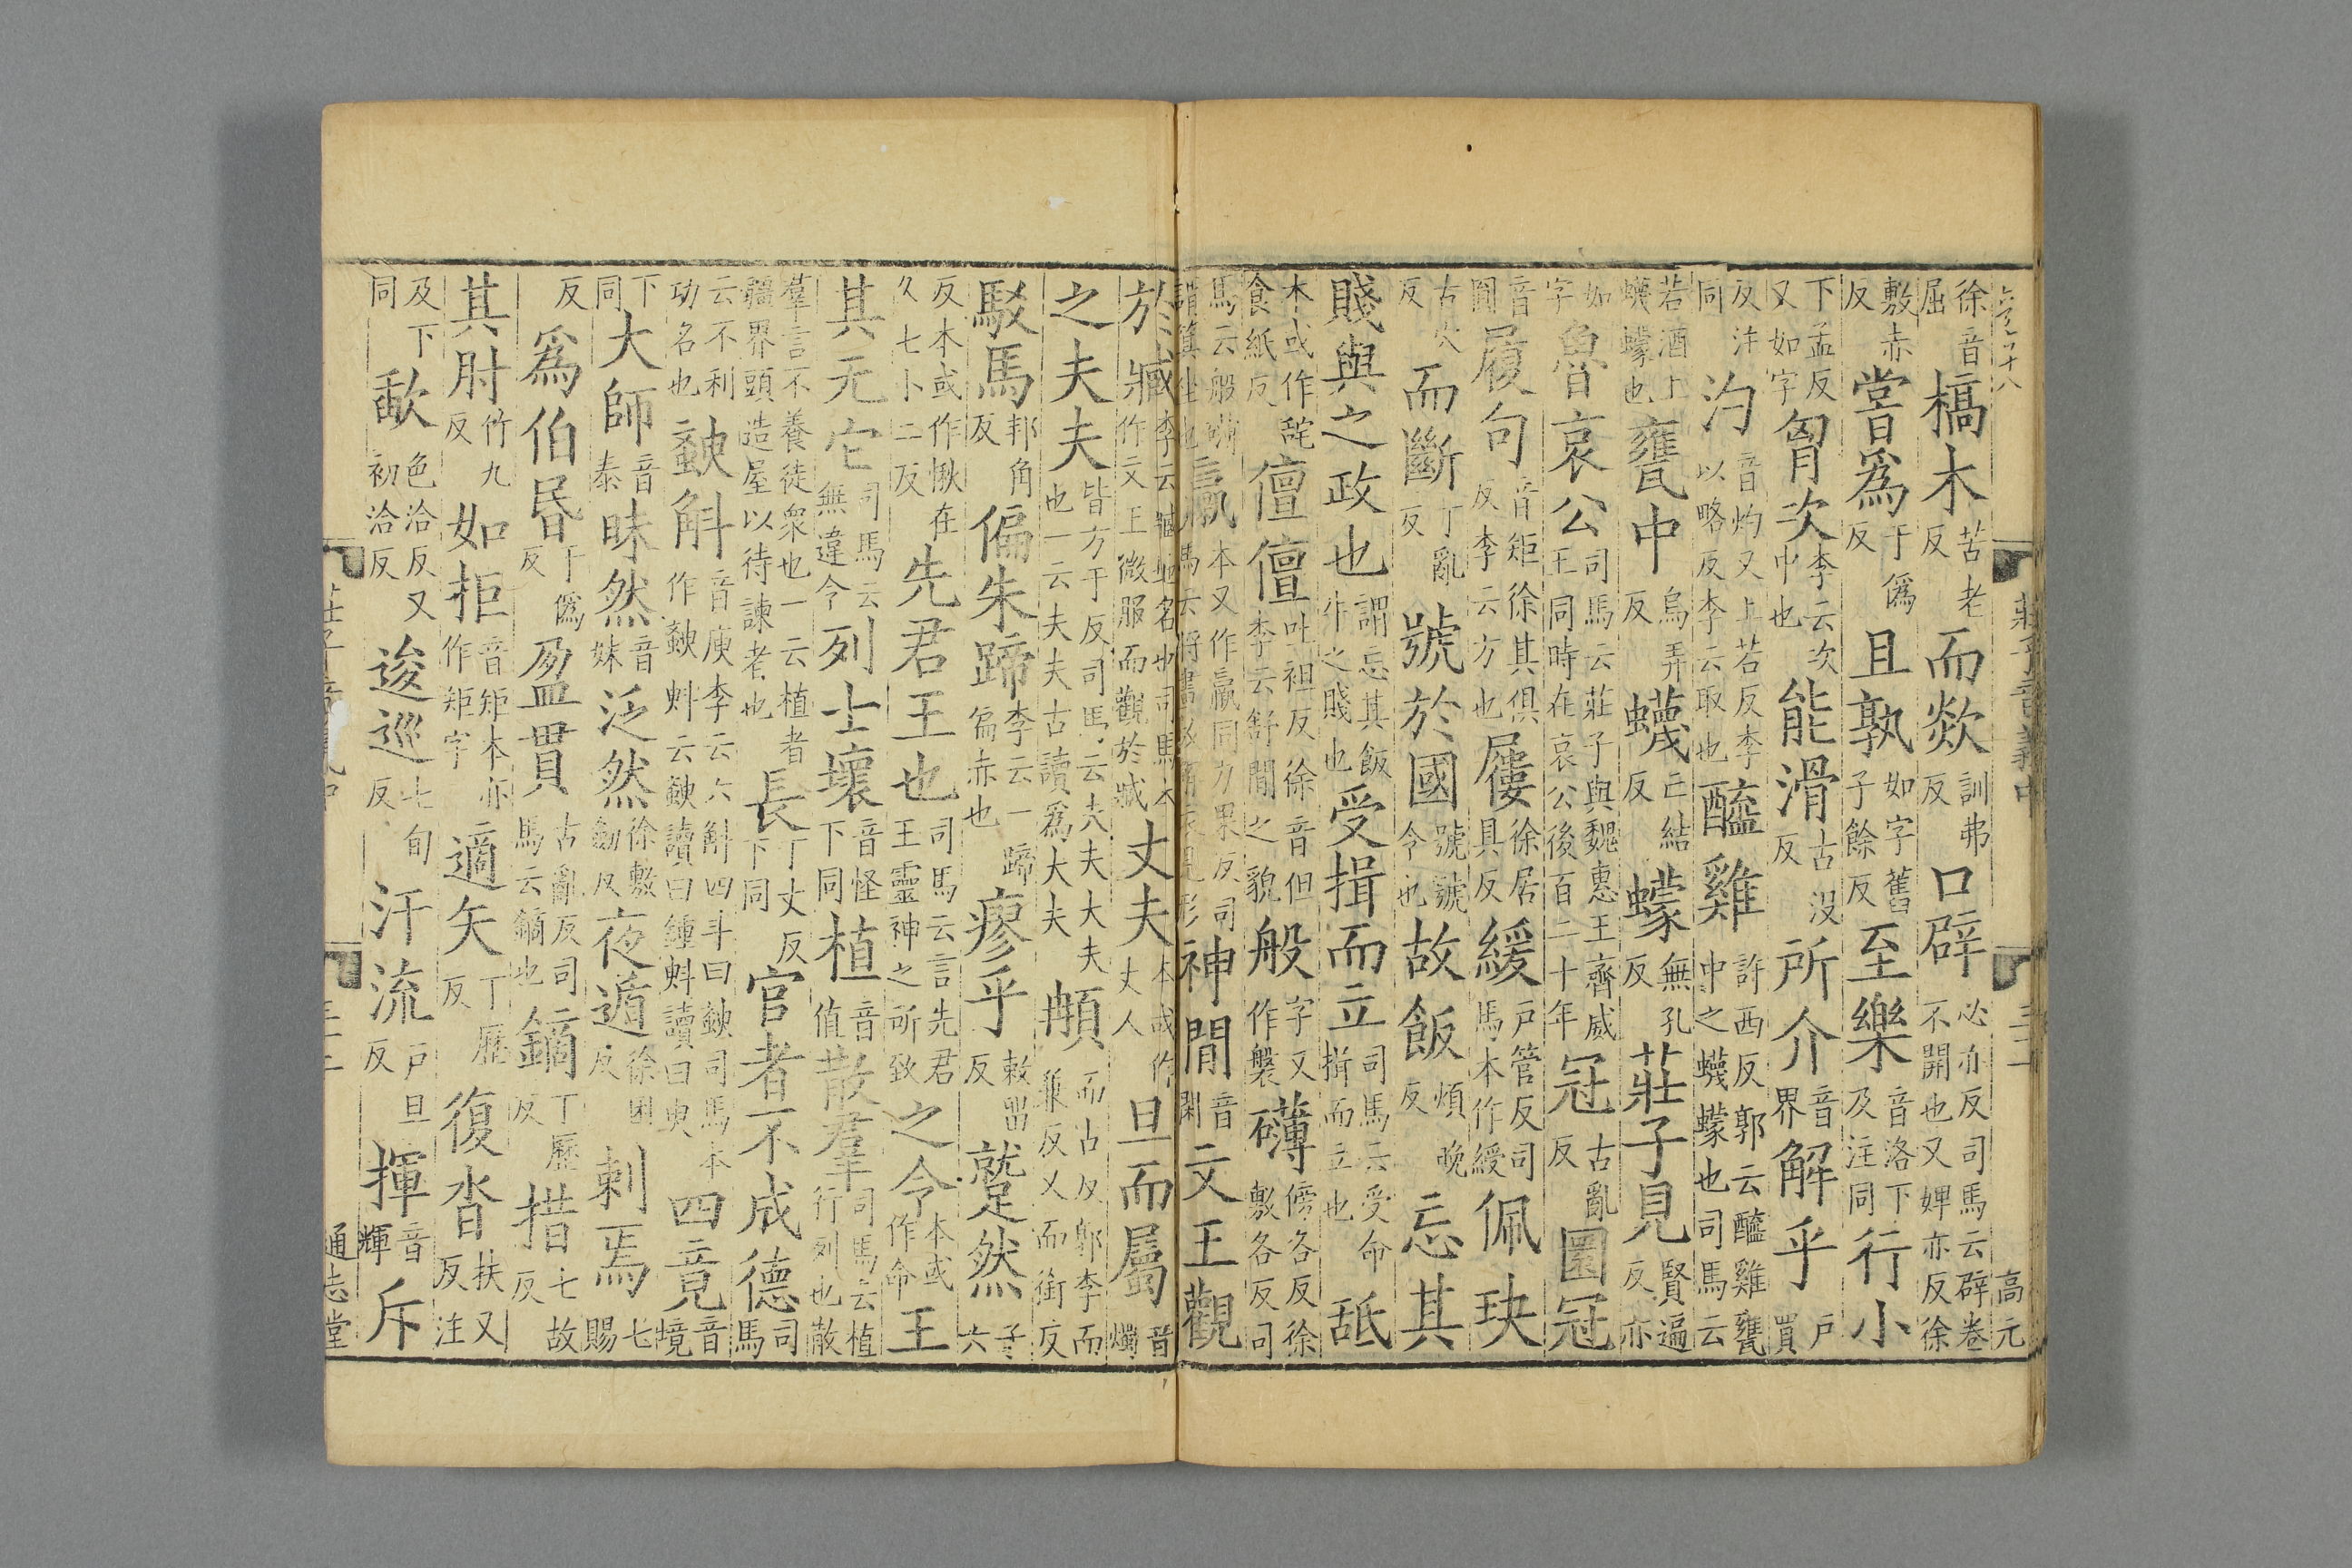 徐音屈槁木苦老反而欻訓弗反口辟必亦反司馬云辟卷不開也又婢亦反徐
敷赤反嘗爲于僞反且孰如字舊子餘反至樂音洛下及注同行小
下孟反又如字胷次李云次中也能滑古没反所介音界解乎戸買
反注同汋音灼又上若反李以略反李云取也醯雞許西反郭云醯雞甕中之蠛蠓也司馬云
若酒上蠛蠓也甕中烏弄反蠛亡結反蠓無孔反莊子見賢遍反亦
如字魯哀公司馬云莊子與魏惠王齊威王同時在哀公後百二十年冠古亂反圜冠
音圓履句音矩徐其俱反李云方也屨徐居具反緩戸管反司馬本作綬佩玦
古穴反而斷丁亂反號於國號號令也故飯煩晚反忘其
賤與之政也謂忘其飯牛之賤也受揖而立司馬云受命揖而立也舐
本或作䑛食紙反儃儃吐袒反徐音但李云舒閒之貌般字又作褩礴傍各反徐敷各反司
馬云般礴謂箕坐也臝本又作羸同力果反司馬云將畫故解衣見形神閒音閑文王觀
莊子音義中
三十一
高元
於臧李云臧地名也司馬本作文王微服而觀於臧丈夫本或作丈人旦而屬音燭
之夫夫皆方于反司馬云夫夫大夫也一云夫夫古讀爲大夫𩑺而占反郭李而兼反又而銜反
駁馬邦角反偏朱蹄李云一蹄偏赤也瘳乎敕留反蹵然子六
反本或作愀在久七小二反先君王也司馬云言先君王靈神之所致之令本或作命王
其无它司馬云無違令列士壞音怪下同植音值散羣司馬云植行列也散
羣言不養徒衆也一云植者疆界頭造屋以待諫者也長丁丈反下同官者不成德司馬
云不利功名也𧗱斛音庾李云六斛四斗曰𧗱司馬本作𧗱斞云𧗱讀曰鍾斞讀曰臾四竟音境
下同大師音泰昧然音妹泛然徐敷劒反夜遁徐困反剌焉七賜
反爲伯昏于僞反盈貫古亂反司馬云鏑也鏑丁歷反措七故反
其肘竹九反如拒音矩本亦作矩字適矢丁歷反復沓扶又反注
及下同歃色洽反又初洽反逡巡七旬反汗流戸旦反揮音輝斥
通志堂